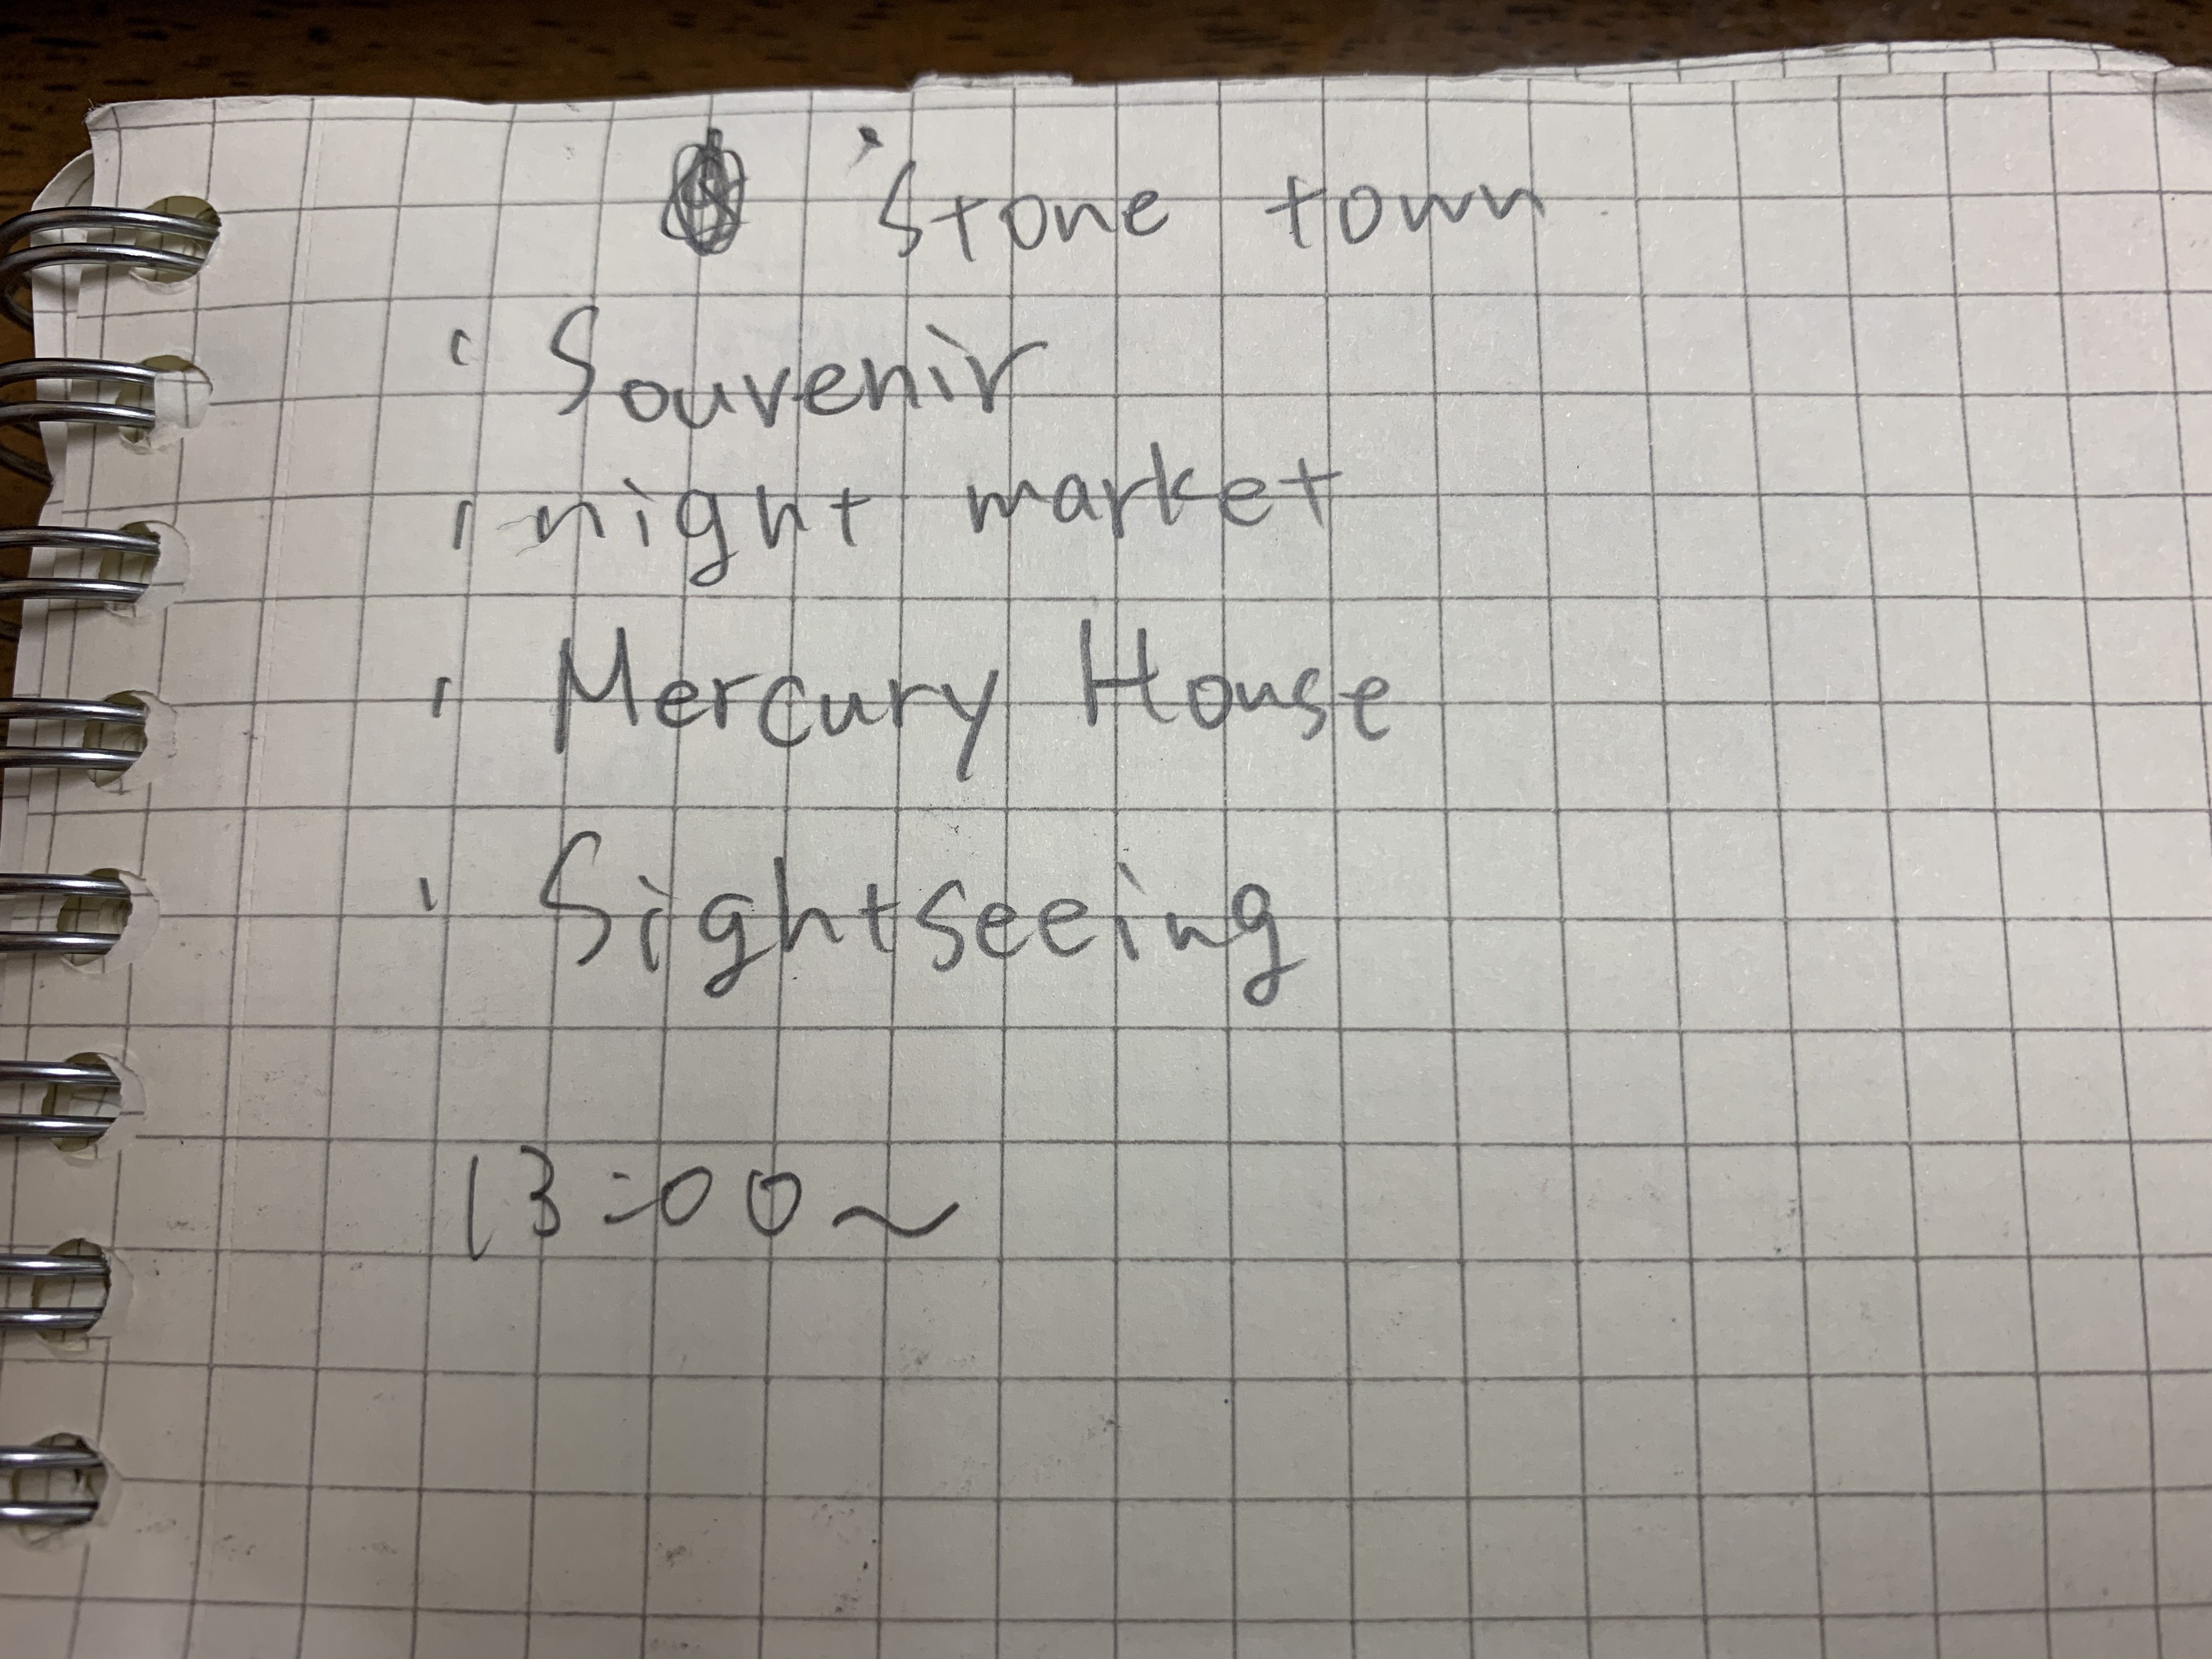 Stone town
· Souvenir
· night market
· Mercury House
· Sightseeing
13:00~